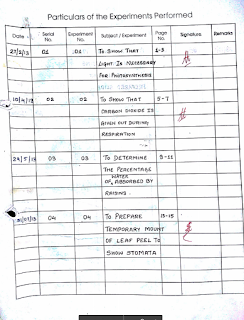 Particulars of the Experiments Performed
Date Serial No. Experiment No. Subject / Experiment Page No. Signature Remarks
27/2/13 01 01 TO SHOW THAT 1-3
LIGHT IS NECESSARY
FOR PHOTOSYNTHESIS
10/4/13 02 02 TO SHOW THAT 5-7
CARBON DIOXIDE IS
GIVEN OUT DURING
RESPIRATION
24/5/13 03 03 TO DETERMINE 9-11
THE PERCENTAGE
OF WATER ABSORBED BY
RAISINS
/07/13 04 04 TO PREPARE 13-15
TEMPORARY MOUNT
OF LEAF PEEL TO
SHOW STOMATA